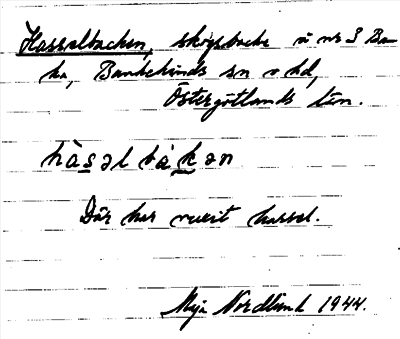 Hasselbacken, skogsbacke å nr 3 Ba-
ka, Bankekinds sn o hd,
Östergötlands län.
hàsəlbákən
Där har vuxit hassel.
Maja Nordlund 1944.